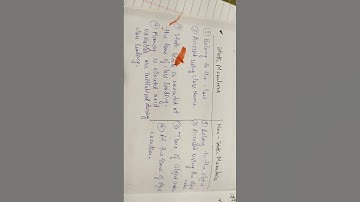 Static Members
① Belong to the class
② Accessed using class Name
③ Static block is executed at
the time of class loading.
④ Memory is allocated and
variables are initialized during
class loading
Non-Static Members
① Belong to the object
② Accessed using the
③ Time of object
④ At the time of object
creation.